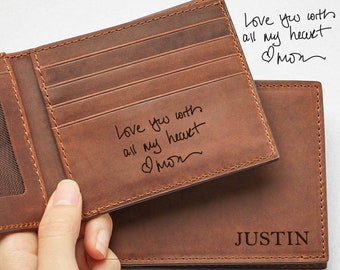 Love you with
all my heart
♡mom
Love you with
all my heart
♡mom
JUSTIN